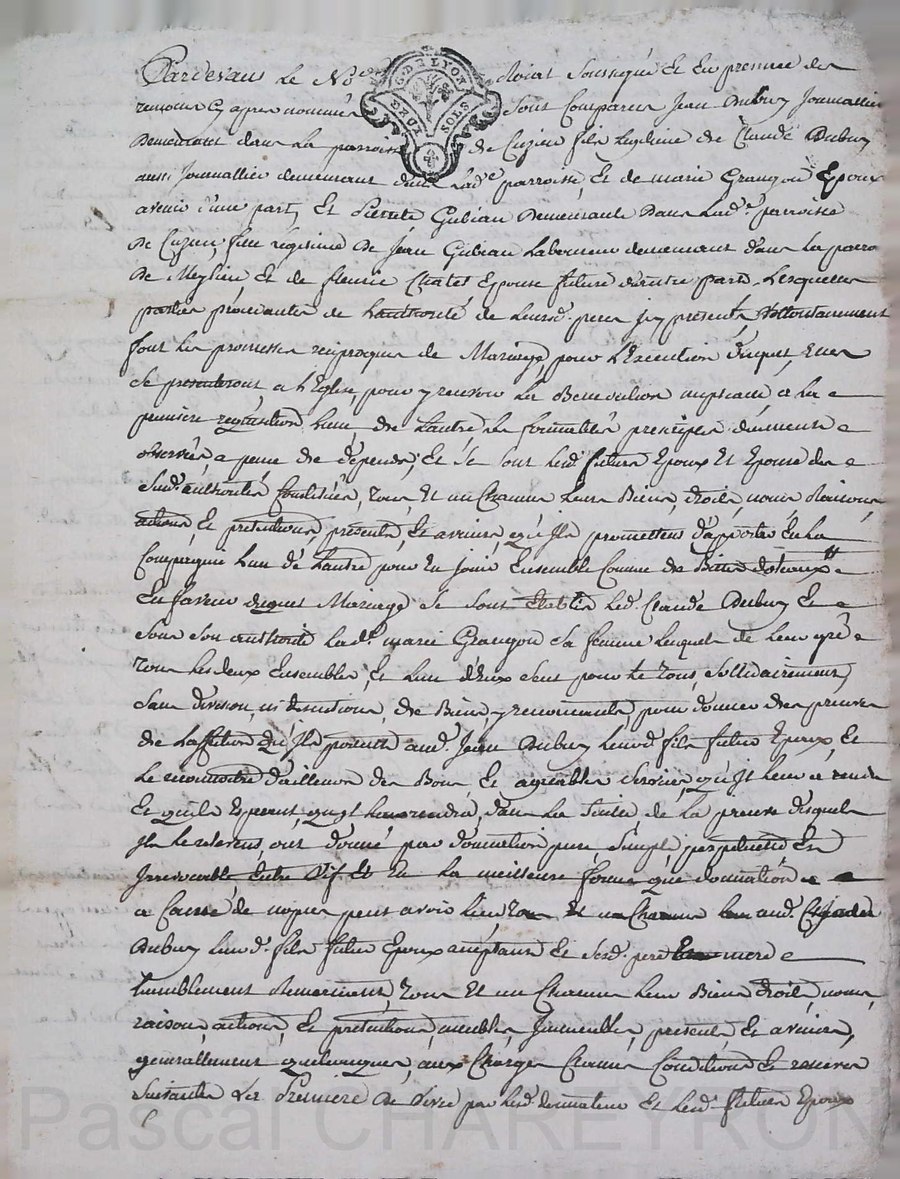 Pardevant Le No.re Roial Soussigné Et En presence des
temoins Cy apres nommés Sont Comparus Jean Dubuy Journallier
Demeurant dans La parroisse de Cuzieu fils Legitime de Claude Dubuy
aussi Journallier demeurant dans Lad.e parroisse, Et de marie Grangon Epoux
avenir d'une part, Et Pierrete Gubian Demeurante Dans Lad.e parroisse
De Cuzieu, fille légitime De Jean Gubian Laboureur demeurant dans La parro
De Meylieu, Et de fleurie Chatet Epouse future d'autre part, Lesquelles
parties procedantes de Lauthorité de Leursd. peres jcy presents, Vollontairement
font Les promesses reciproques de Mariage, pour L'Execution duquel, Elles
Se presenteront a L'Eglise, pour y recevoir La Benediction nuptiale, a La
premiere requisition Lune de Lautre Les formalités prescriptes duement
observés, a peine de dépends, Et Se Sont Lesd. futurs Epoux Et Epouse des
Susd. authorités Constitués, Tous Et un Chacuns Leurs Biens, droits, noms, Raisons
actions, Et pretentions, presents, Et avenirs, qu'Jls promettent d'apporter En La
Compagnie Lun de Lautre pour En jouir Ensemble Comme de Biens dotaux
En faveur duquel Mariage Se Sont Etablis Led. Claude Dubuy Et
Sous Son authorité Lad. marie Grangon Sa femme Lesquels de Leur gré
Tous Les deux Ensemble, Et Lun d'Eux Seul pour Le Tous, Sollidairement,
Sans division, ni discution, de Biens, y renonceants, pour donner des preuves
de Laffection qu'Jls portent aud. Jean Dubuy Leurd. fils futur Epoux, Et
Le reconnoitre d'ailleurs des Bons, Et agréables Services, qu'Jl Leur a rendu
Et qu'ils Esperent, qu'Jl Leur rendra, dans La Suite de La preuve desquels
Jls Le relevent, ont donné par donnation pure Simple perpetuelle Et
Jrrevocable Entre Vif Et En La meilleure forme que donnation
a Cause de nopces peut avoir Lieu Tous Et un Chacuns aud.
Dubuy Leurd. fils futur Epoux acceptant Et Sesd. pere mere
humblement Remerciant, Tous Et un Chacuns Leurs Biens droits, noms,
raisons, actions, Et pretentions, meubles Jmmeubles, presents, Et avenirs,
generallement quelconques, aux Charges Clauses Conditions Et reserves
Suivantes La Premiere De Vivre par Lesd. donnateurs Et Lesd. futurs Epoux
G. DE LYON
DEUX SOLS
Pascal CHAREYRON